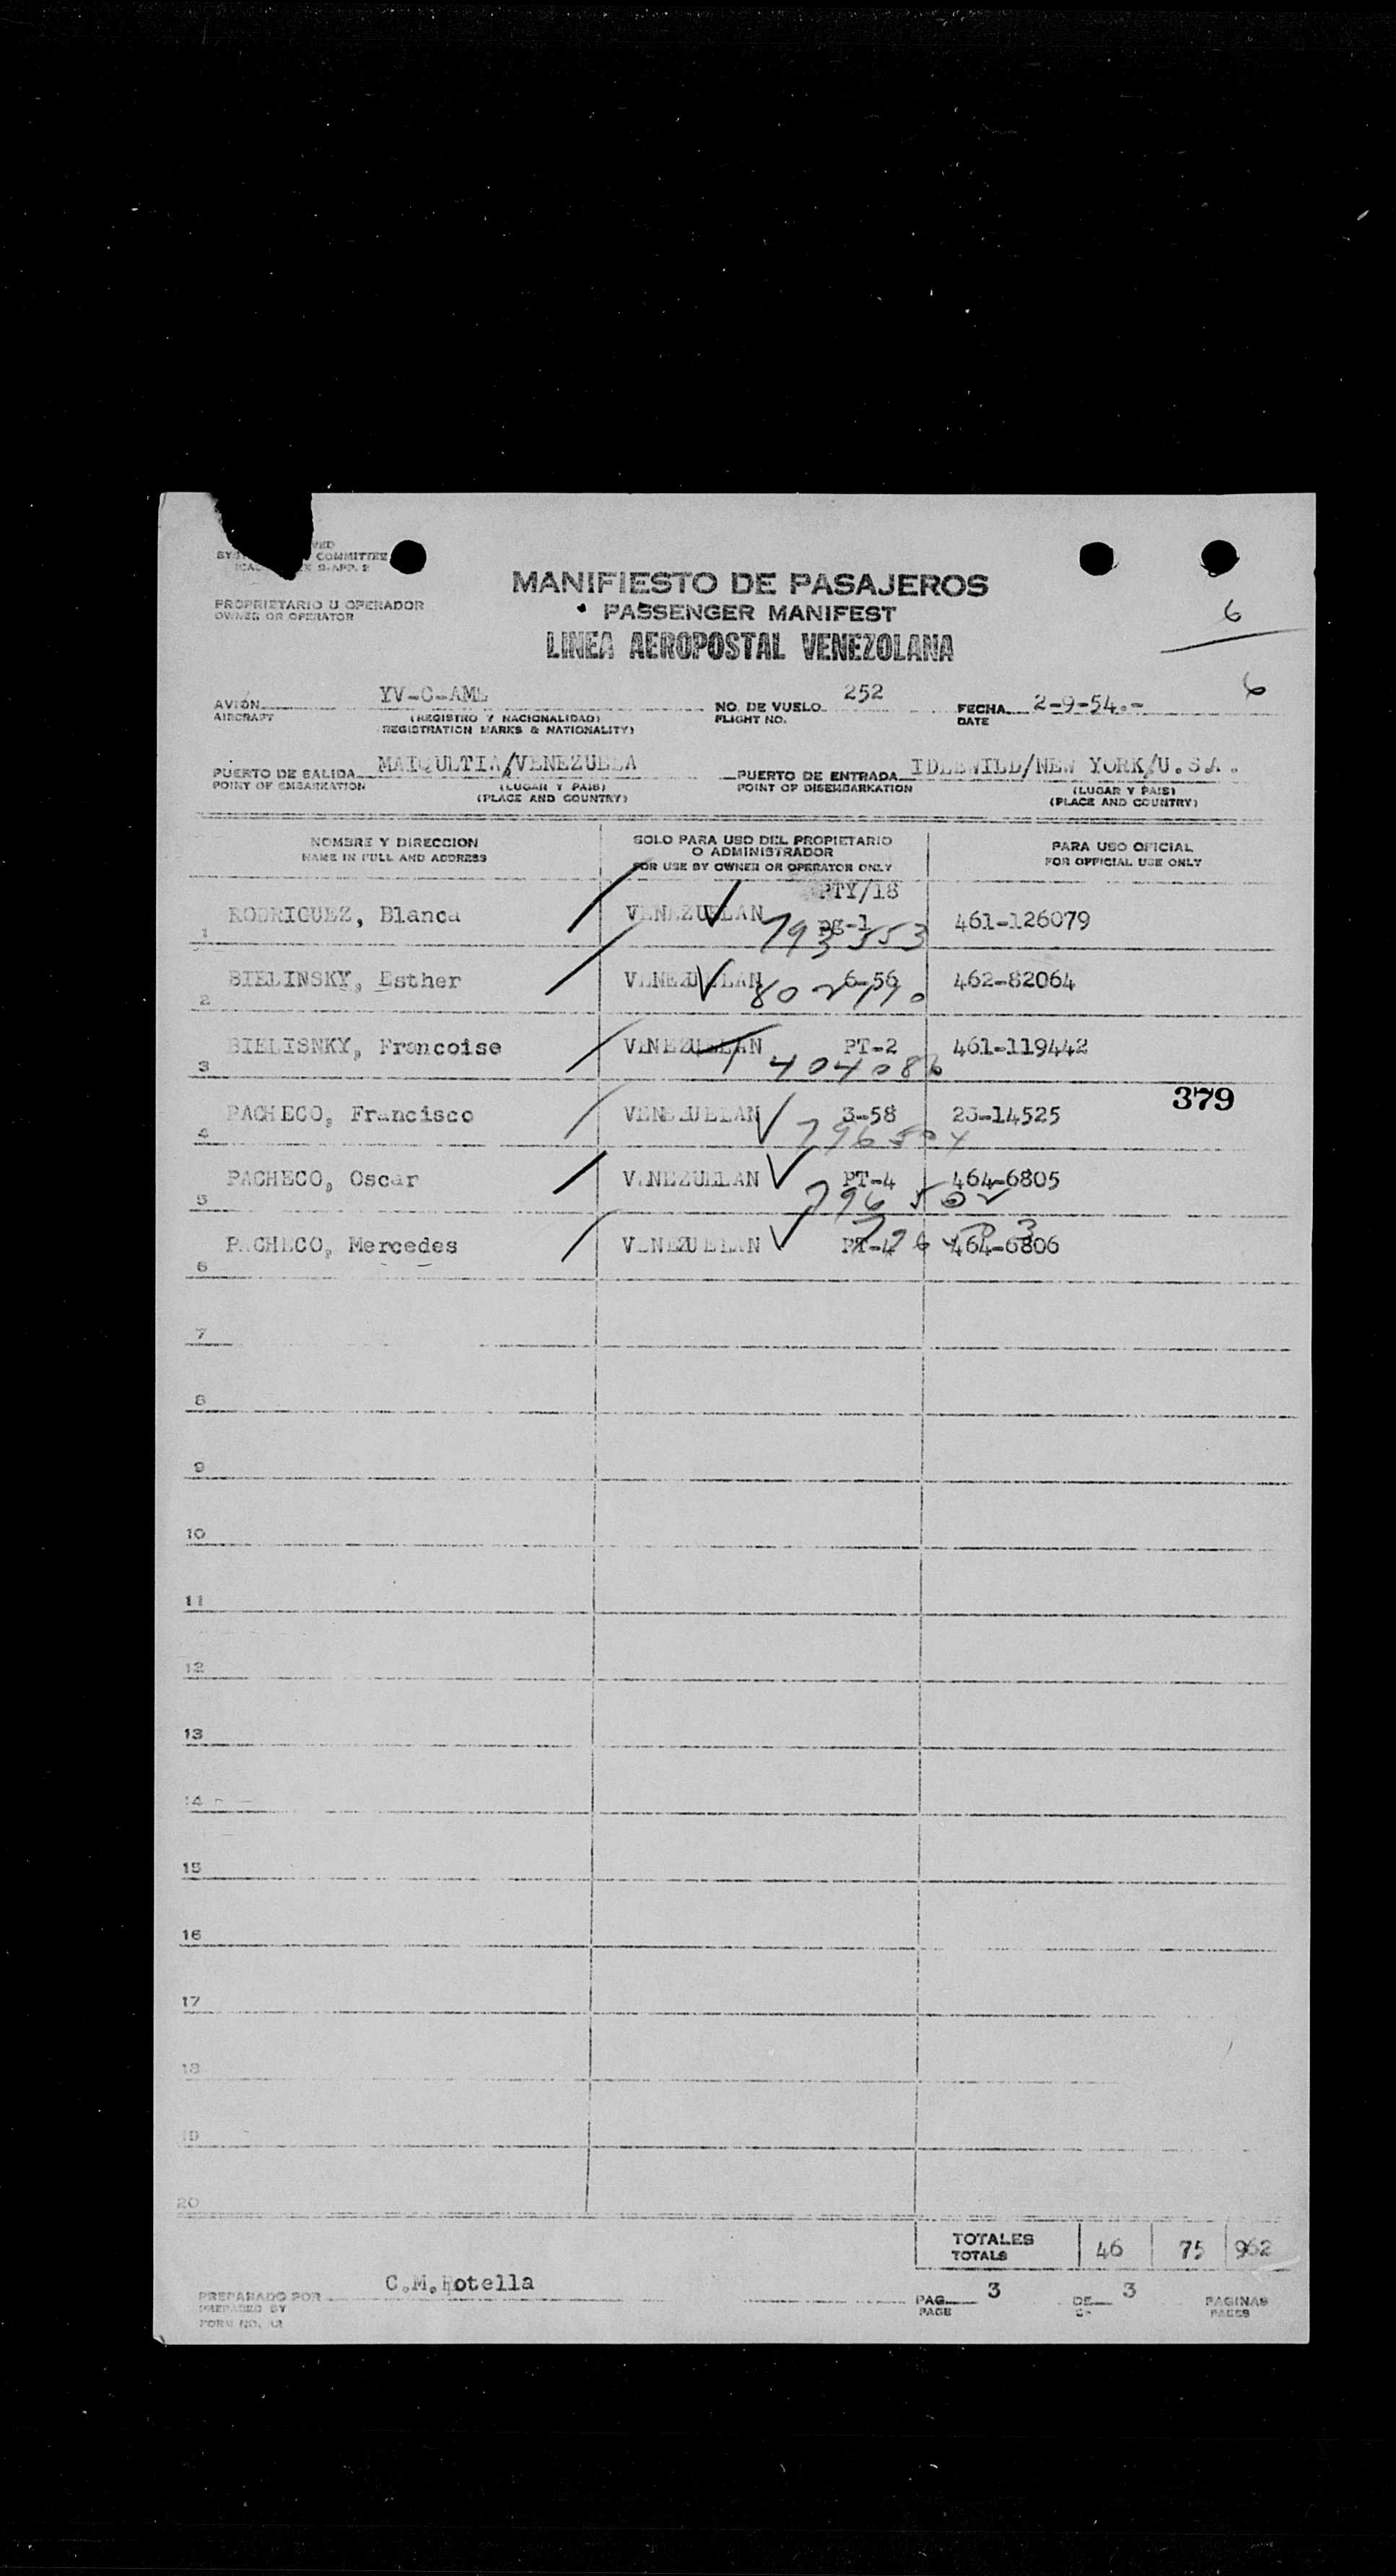 COMMITTEE
MANIFIESTO DE PASAJEROS
PROPRIETARIO U OPERADOR
OWNER OR OPERATOR
PASSENGER MANIFEST
6
LINEA AEROPOSTAL VENEZOLANA
6
AVIÓN YV-C-AML NO. DE VUELO 252 FECHA 2-9-54.-
AIRCRAFT (REGISTRO Y NACIONALIDAD) FLIGHT NO. DATE
REGISTRATION MARKS & NATIONALITY)
PUERTO DE SALIDA MAIQUETIA/VENEZUELA PUERTO DE ENTRADA IDLEWILD/NEW YORK/U.S.A.
POINT OF EMBARKATION (LUGAR Y PAIS) POINT OF DISEMBARKATION (LUGAR Y PAIS)
(PLACE AND COUNTRY) (PLACE AND COUNTRY)
NOMBRE Y DIRECCION SOLO PARA USO DEL PROPIETARIO PARA USO OFICIAL
NAME IN FULL AND ADDRESS O ADMINISTRADOR FOR OFFICIAL USE ONLY
FOR USE BY OWNER OR OPERATOR ONLY
PTY/18
1 RODRIGUEZ, Blanca VENEZUELAN pg-1 461-126079
793553
2 BIELINSKY, Esther VENEZUELAN 6-56 462-82064
3 BIELISNKY, Francoise VENEZUELAN PT-2 461-119442
379
4 PACHECO, Francisco VENEZUELAN 3-58 23-14525
796504
5 PACHECO, Oscar VENEZUELAN PT-4 464-6805
796502
6 PACHECO, Mercedes VENEZUELAN PT-4 464-6806
7
8
9
10
11
12
13
14
15
16
17
18
19
20
TOTALES 46 75 962
TOTALS
PREPARADO POR C.M.Rotella PAG. 3 DE 3 PAGINAS
PREPARED BY PAGE OF PAGES
FORM NO.